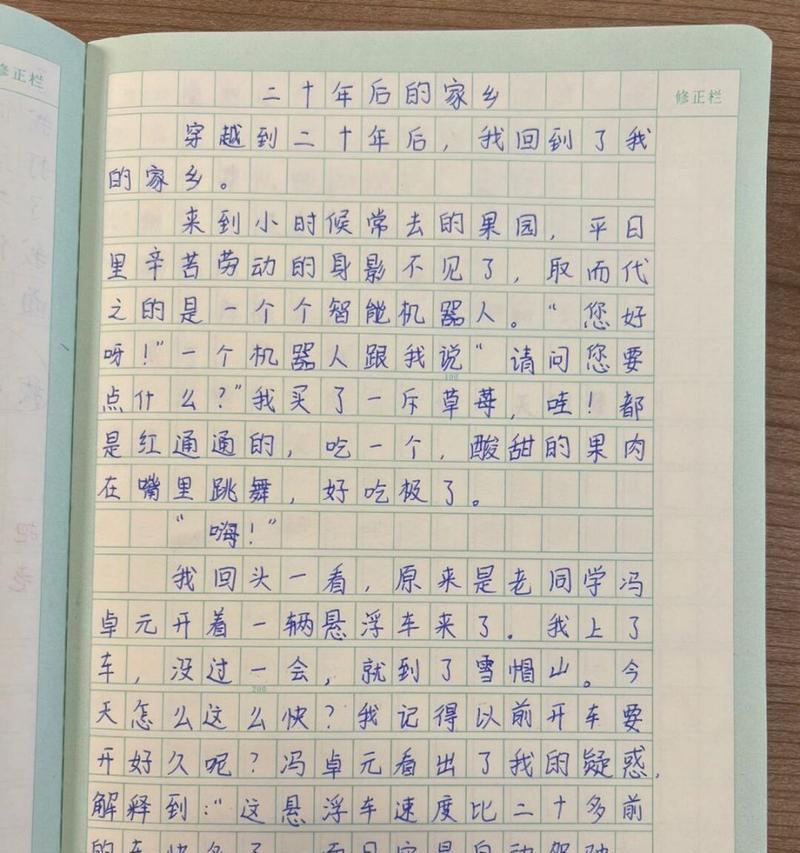 修正栏
修正栏
二十年后的家乡
穿越到二十年后，我回到了我
的家乡。
来到小时候常去的果园，平日
里辛苦劳动的身影不见了，取而代
之的是一个个智能机器人。“您好
呀！”一个机器人跟我说“请问您要
100
点什么？”我买了一斤草莓，哇！都
是红通通的，吃一个，酸甜的果肉
在嘴里跳舞，好吃极了。
“嗨！”
我回头一看，原来是老同学冯
卓元开着一辆悬浮车来了。我上了
车，没过一会，就到了雪帽山。今
200
天怎么这么快？我记得以前开车要
开好久呢？冯卓元看出了我的疑惑，
解释到：“这悬浮车速度比二十多前
的车快多了，而且它是自动驾驶